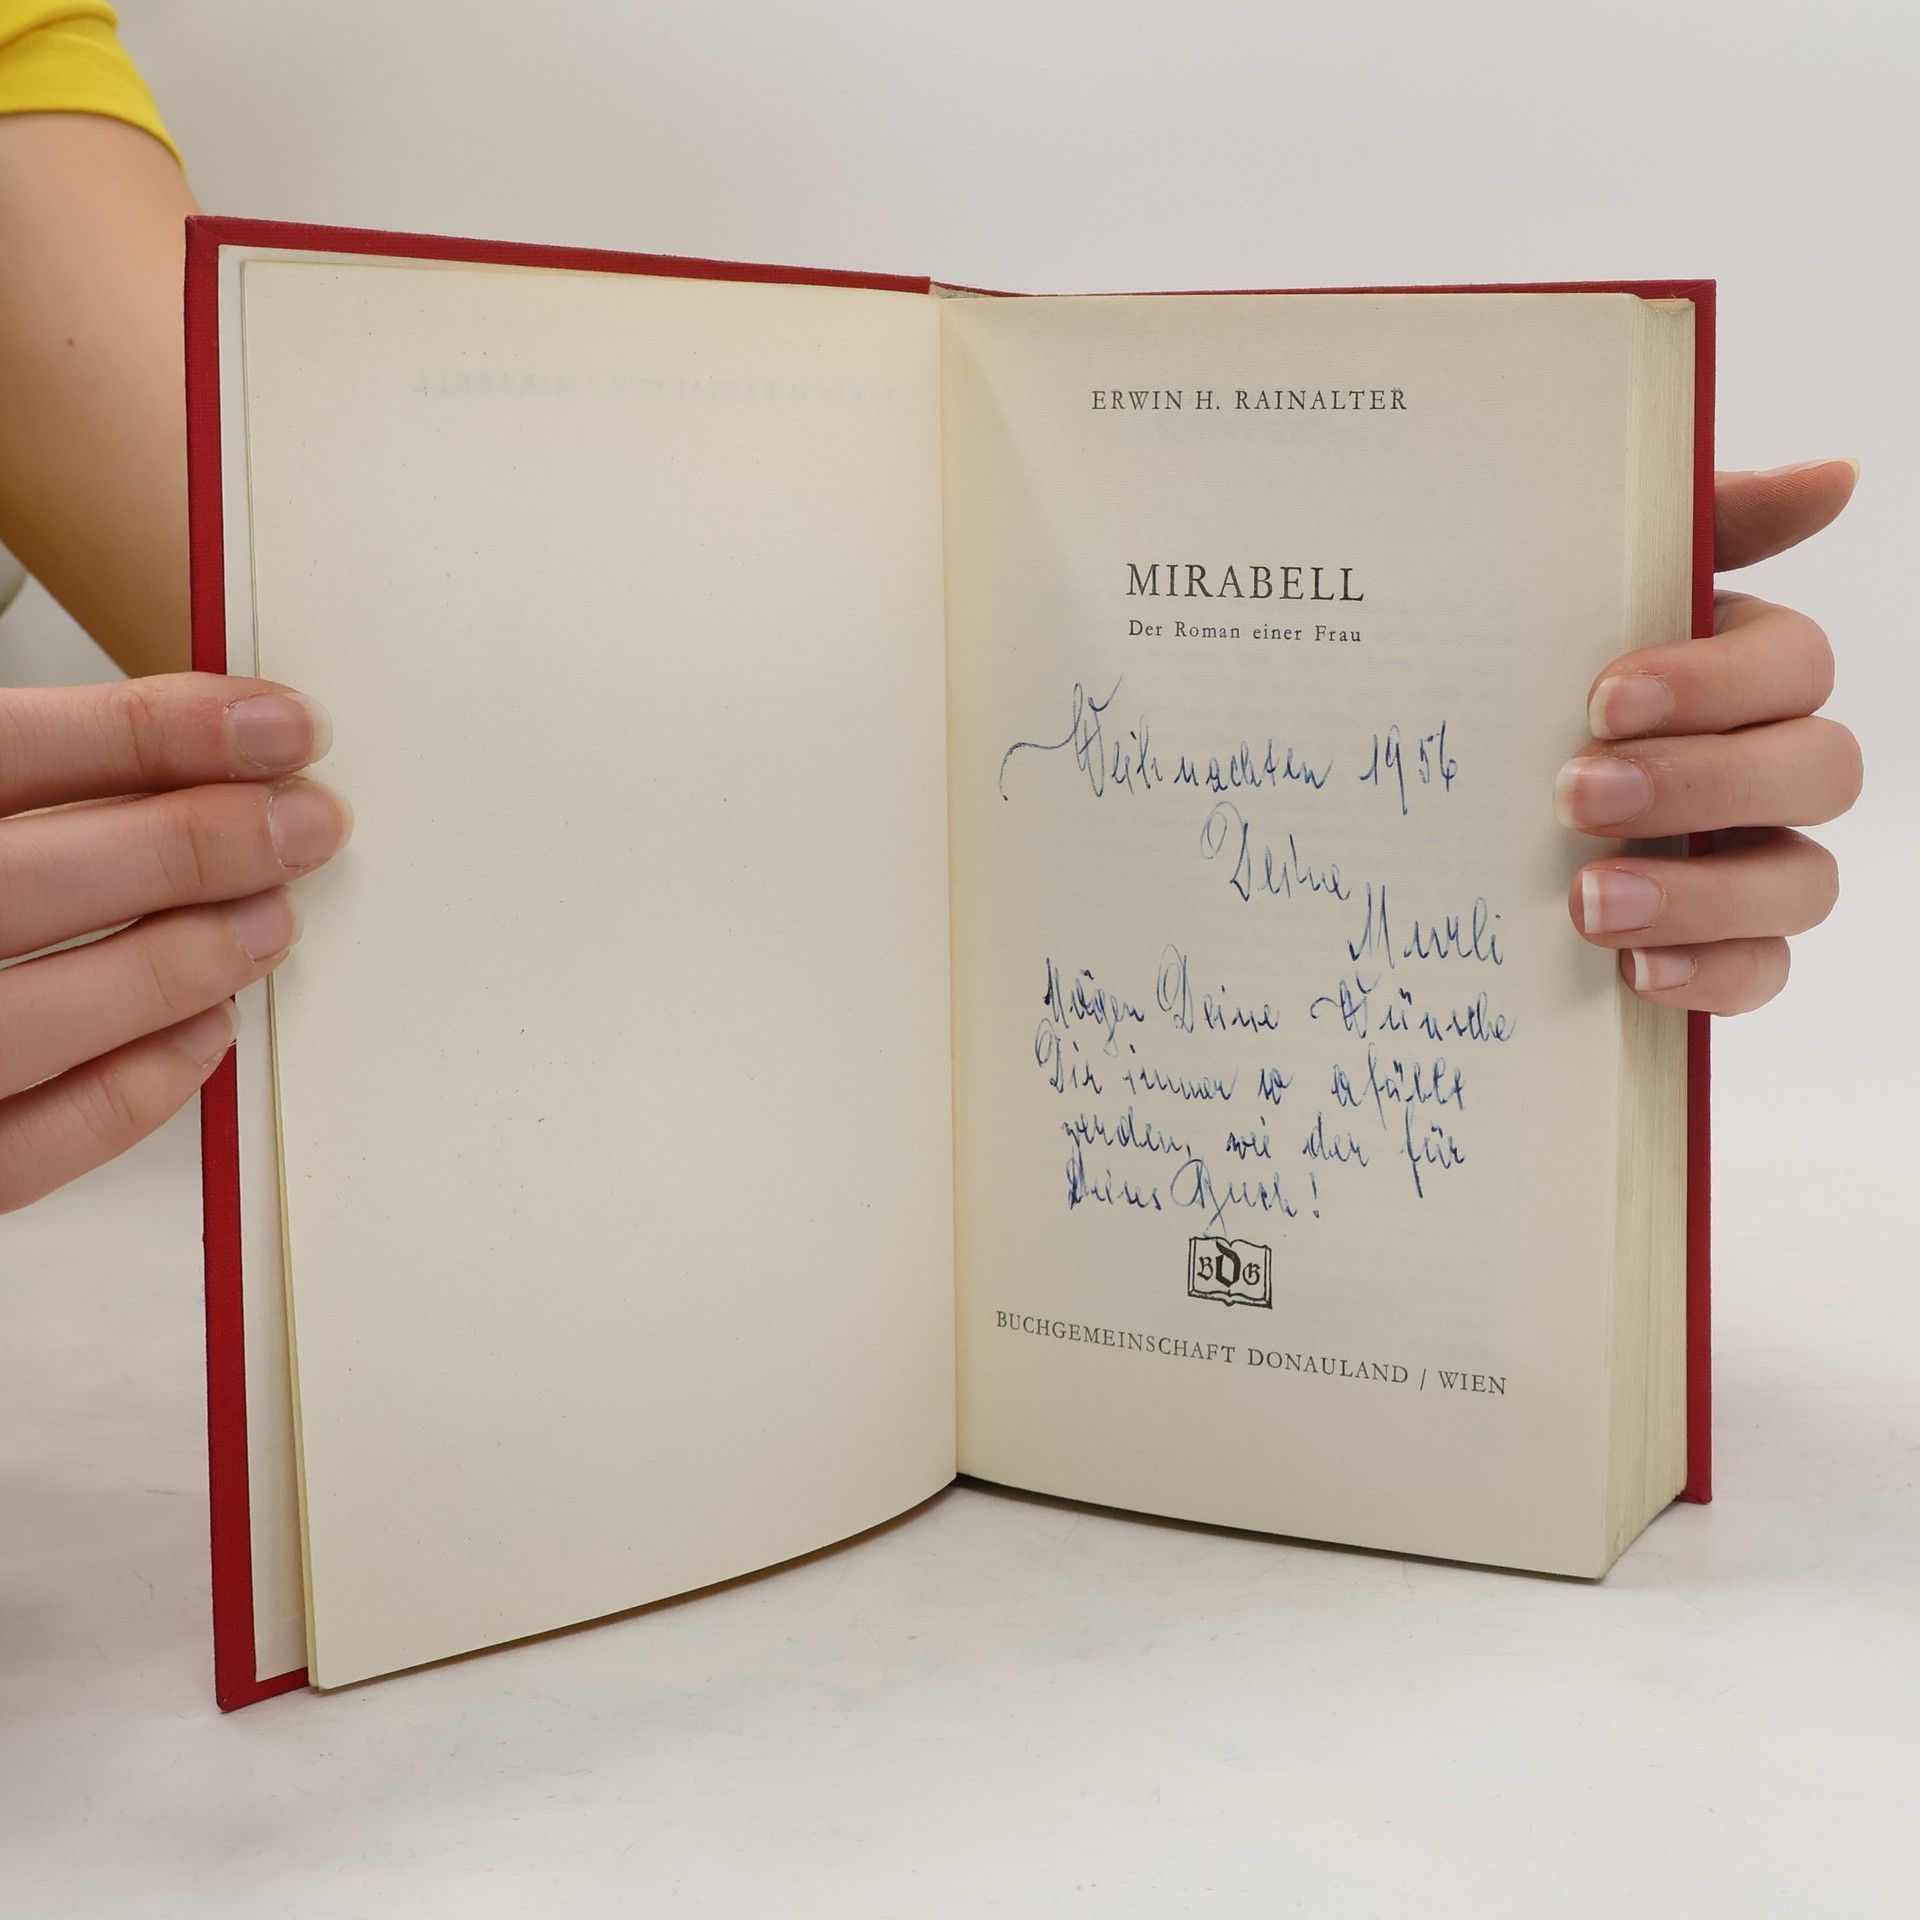 ERWIN H. RAINALTER
MIRABELL
Der Roman einer Frau
Weihnachten 1956
Deine
Murli
Mögen Deine Wünsche
Dir immer so erfüllt
werden, wie der für
Buch!
BDG
BUCHGEMEINSCHAFT DONAULAND / WIEN